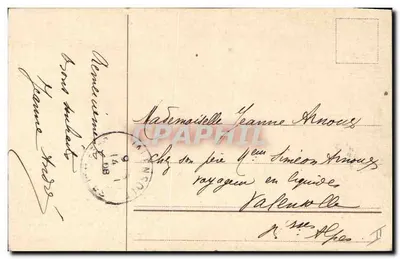 Remerciements
Bons souhaits
Jeanne André
Mademoiselle Jeanne Arnoux
Chez son père Mr Siméon Arnoux
voyageur en liquides
Valensole
Bses Alpes
CPAPHIL